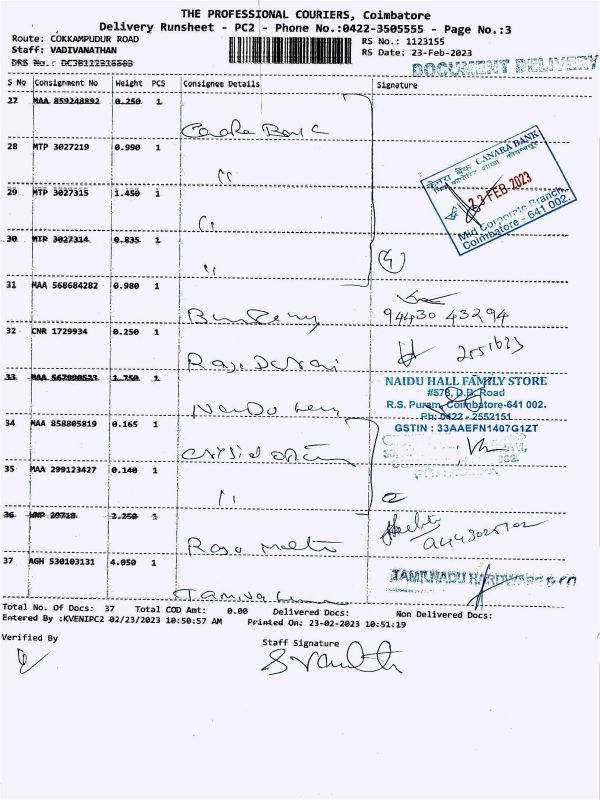 THE PROFESSIONAL COURIERS, Coimbatore
Delivery Runsheet - PC2 - Phone No.:0422-3505555 - Page No.:3
Route: COKKAMPUDUR ROAD
RS No.: 1123155
Staff: VADIVANATHAN
RS Date: 23-Feb-2023
DRS No.:
DOCUMENT DELIVERY
S No Consignment No Weight PCS Consignee Details Signature
27 MAA 859248892 0.250 1
Canara Bank
28 MTP 3027219 0.990 1
"
केनरा बैंक CANARA BANK
23 FEB 2023
Mid Corporate Branch,
Coimbatore - 641 002.
29 MTP 3027315 1.450 1
"
30 MTP 3027314 0.835 1
"
4
31 MAA 568684282 0.980 1
94430 43294
32 CNR 1729934 0.250 1
2551623
33 MAA 567990523 1.750 1
Naidu
NAIDU HALL FAMILY STORE
#578, D.B. Road
R.S. Puram, Coimbatore-641 002.
Ph: 0422 - 2552151
GSTIN : 33AAEFN1407G1ZT
34 MAA 858805819 0.165 1
35 MAA 299123427 0.140 1
"
2
36 39718 2.250 1
37 AGH 530103131 4.050 1
TAMILNADU HARDWARE
Total No. Of Docs: 37 Total COD Amt: 0.00 Delivered Docs: Non Delivered Docs:
Entered By :KVENIPC2 02/23/2023 10:50:57 AM Printed On: 23-02-2023 10:51:19
Verified By
Staff Signature